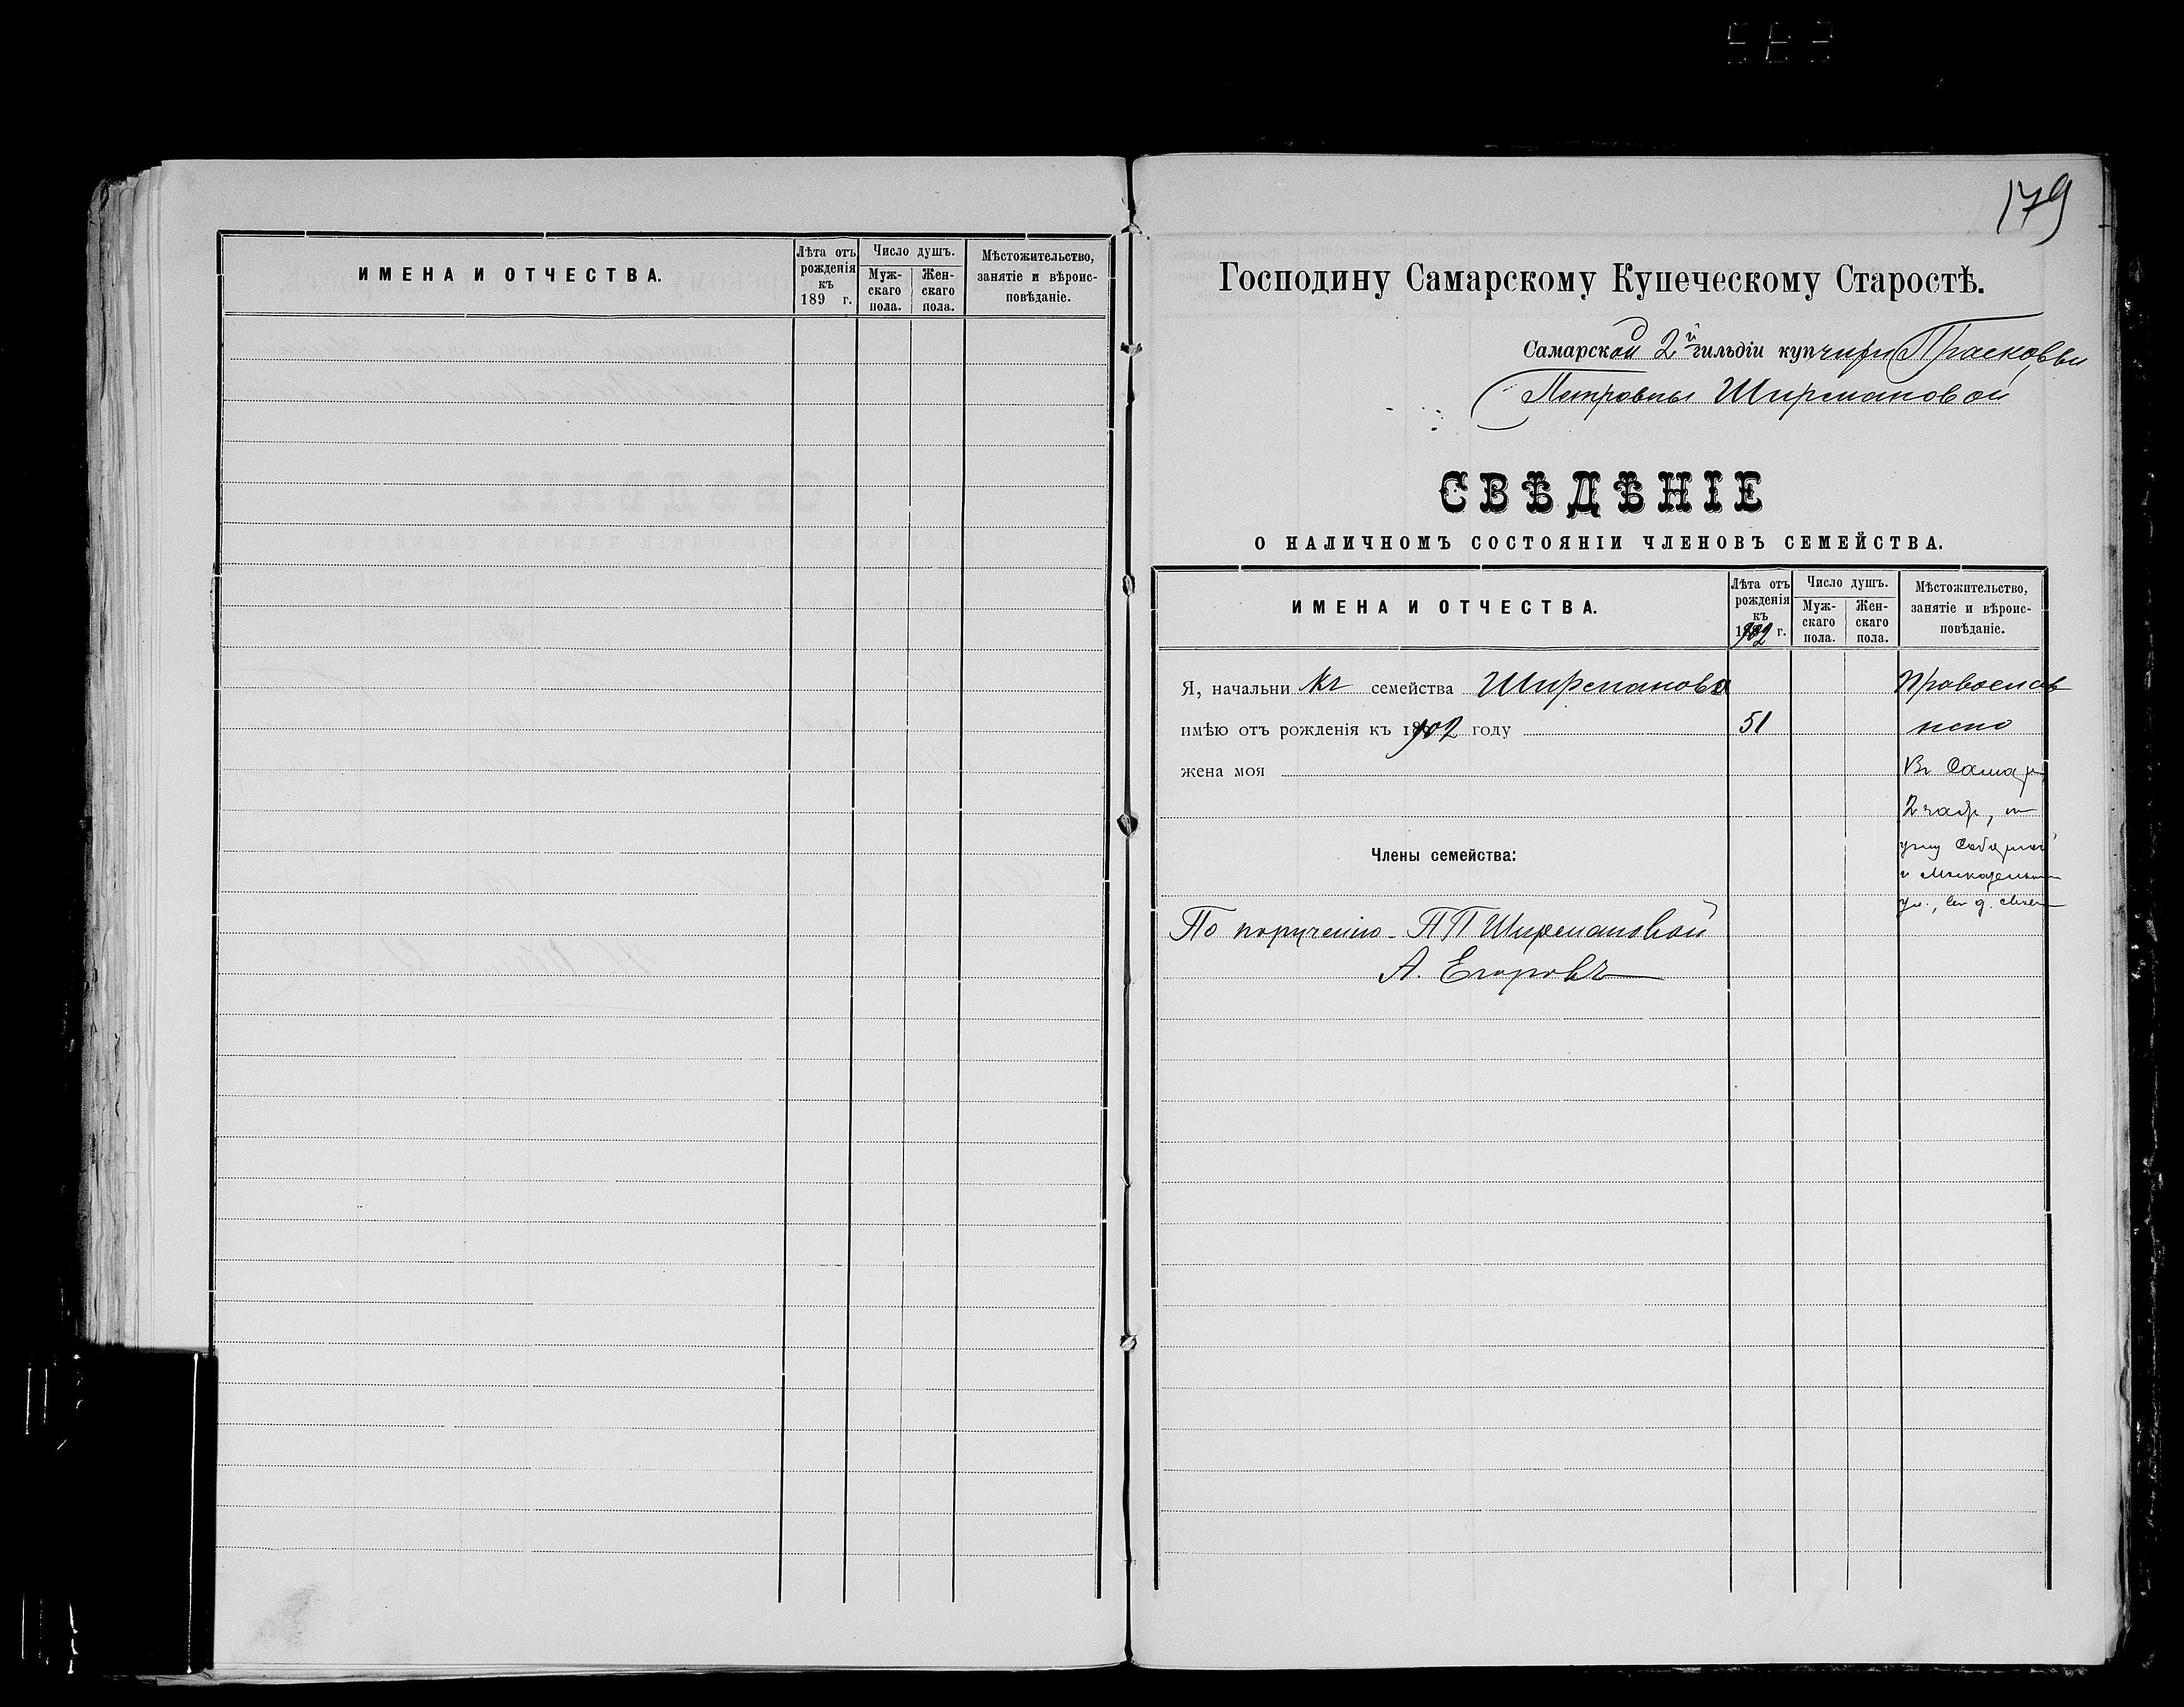 ИМЕНА И ОТЧЕСТВА.
Лѣта отъ рожденія къ 189 г.
Число душъ.
Муж-скаго пола.
Жен-скаго пола.
Мѣстожительство, занятіе и вѣроис-повѣданіе.
179
Господину Самарскому Купеческому Старостѣ.
Самарской 2й гильдіи купчихи Прасковьи
Петровны Ширмановой
СВѢДѢНІЕ
О НАЛИЧНОМЪ СОСТОЯНІИ ЧЛЕНОВЪ СЕМЕЙСТВА.
ИМЕНА И ОТЧЕСТВА.
Лѣта отъ рожденія къ 1902 г.
Число душъ.
Муж-скаго пола.
Жен-скаго пола.
Мѣстожительство, занятіе и вѣроис-повѣданіе.
Я, начальни къ семейства Ширманова Православ
имѣю отъ рожденія къ 1902 году 51
жена моя Въ Самар
2 части,
углу
Члены семейства:
и
ул.,
По порученію П П Ширмановой
А. Егоровъ